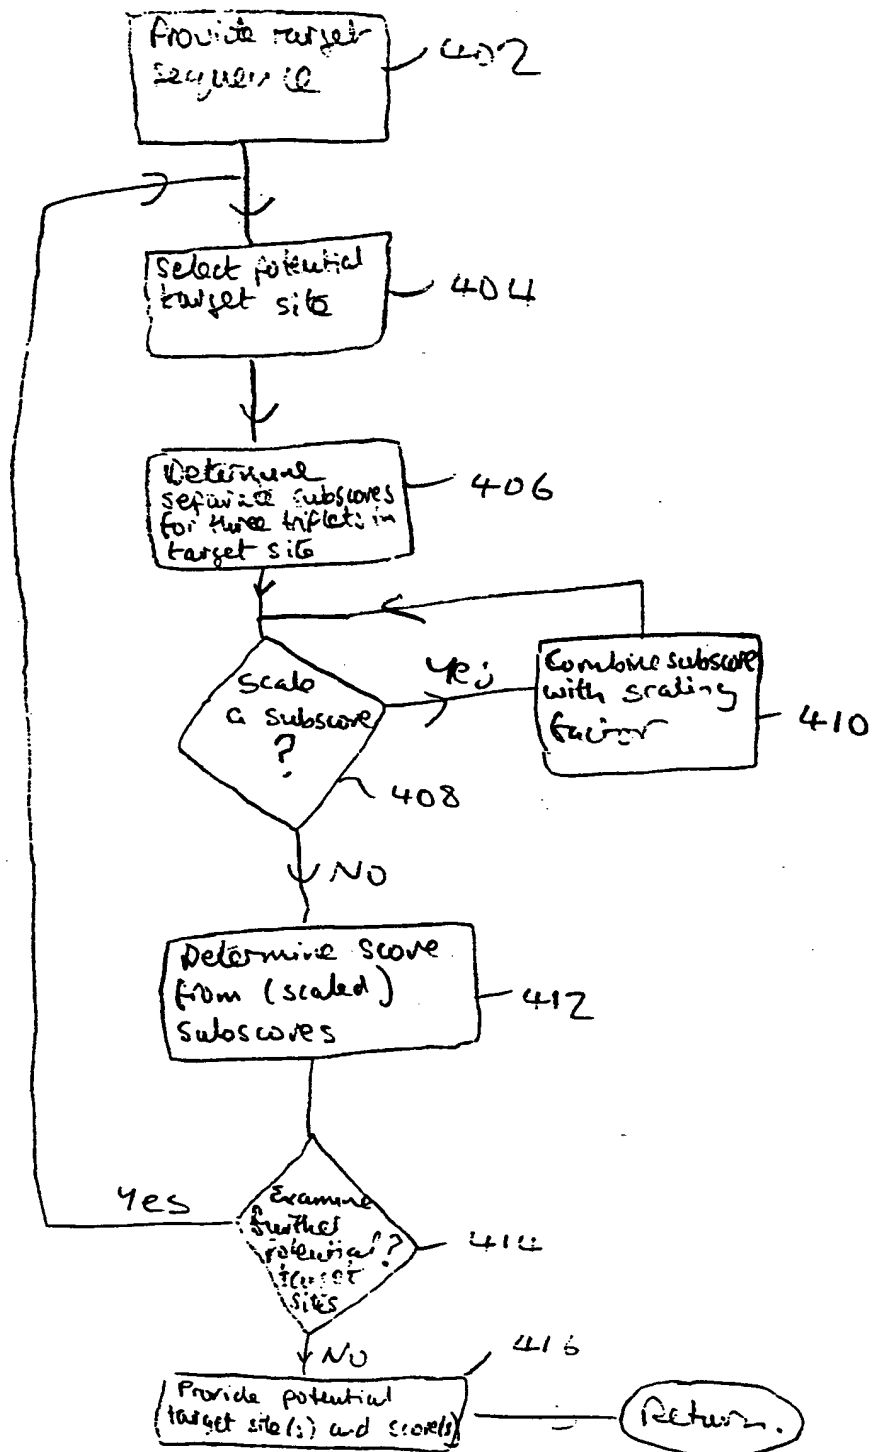 Provide target
sequence
402
Select potential
target site
404
Determine
separate subscores
for three triplets in
target site
406
Scale
a subscore
?
408
Yes
Combine subscore
with scaling
factor
410
NO
Determine score
from (scaled)
subscores
412
Examine
further
potential ?
target
sites
414
Yes
NO
416
Provide potential
target site(s) and score(s)
Return.